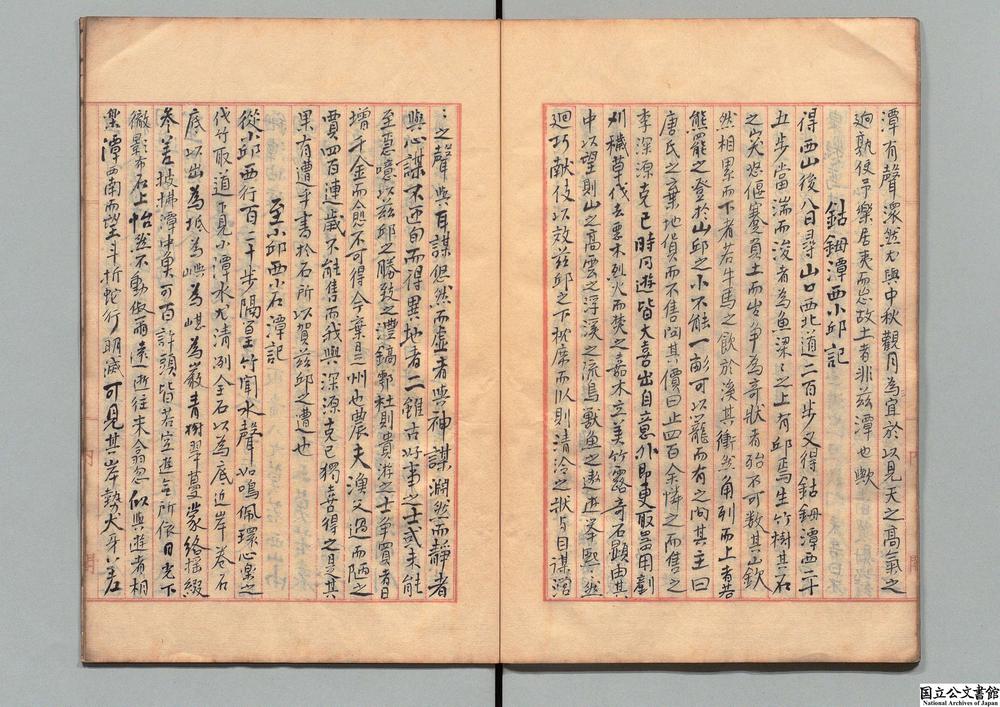 潭有聲潀然尤與中秋觀月為宜於以見天之高氣之
逈孰使予樂居夷而忘故土者非兹潭也歟
鈷鉧潭西小邱記
得西山後八日尋山口西北道二百步又得鈷鉧潭西二十
五步當湍而浚者為魚梁〻之上有邱焉生竹樹其石
之突怒偃蹇負土而出争為奇状者殆不可数其嶔
然相累而下者若牛馬之飲於溪其衝然角列而上者若
熊羆之登於山邱之小不能一畝可以籠而有之问其主曰
唐氏之棄地貨而不售问其價曰止四百余憐之而售之
李深源克己時同遊皆大喜出自意外即更取器用剷
刈穢草伐去惡木烈火而焚之嘉木立美竹露奇石顕由其
中以望則山之高雲之浮溪之流鳥獸魚之遨遊举熙〻然
廻巧献伎以效兹邱之下枕席而臥則清泠之状与目謀瀯
〻之聲與耳謀悠然而虚者與神謀淵然而静者
與心謀不迊旬而得異地者二雖古好事之士或未能
至焉噫以兹邱之勝致之灃鎬鄠杜則貴游之士争買者日
增千金而愈不可得今棄是州也農夫漁父過而陋之
賈四百連歳不能售而我與深源克己獨喜得之是其
果有遭乎書於石所以賀兹邱之遭也
至小邱西小石潭記
從小邱西行百二十步隔篁竹聞水聲如鳴佩環心樂之
伐竹取道下見小潭水尤清冽全石以為底近岸卷石
底以出為坻為嶼為嵁為巖青樹翠蔓蒙絡摇綴
参差披拂潭中魚可百許頭皆若空遊无所依日光下
徹影布石上怡然不動俶爾遠逝往来翕忽似與遊者相
樂潭西南而望斗折蛇行明滅可見其岸勢犬牙差
国立公文書館
National Archives of Japan